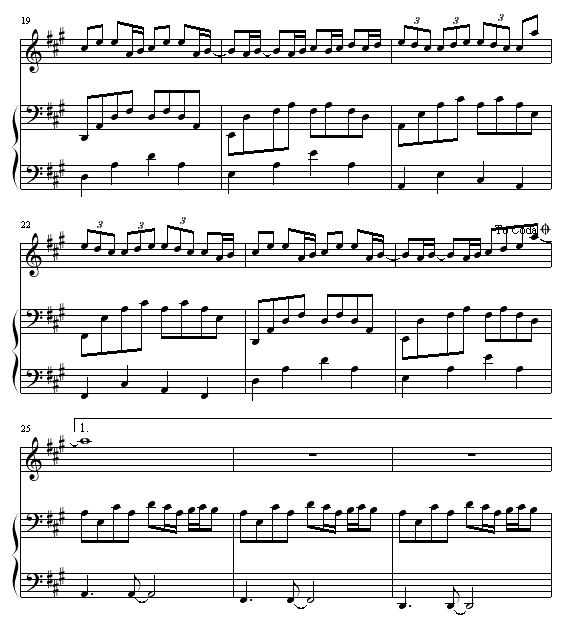 19
3 3 3
22
3 3 3
To Coda
25
1.